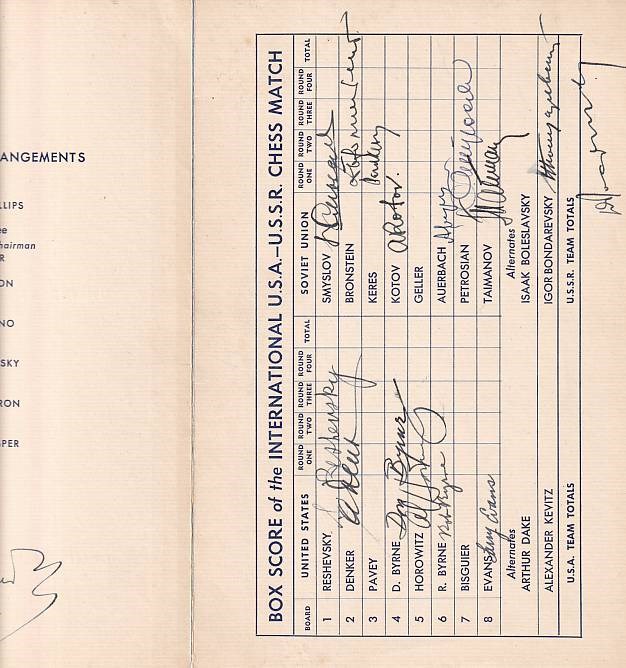 ANGEMENTS
LLIPS
ee
hairman
R
ON
NO
SKY
RON
SPER
BOX SCORE of the INTERNATIONAL U.S.A.–U.S.S.R. CHESS MATCH
BOARD UNITED STATES ROUND ONE ROUND TWO ROUND THREE ROUND FOUR TOTAL SOVIET UNION ROUND ONE ROUND TWO ROUND THREE ROUND FOUR TOTAL
1 RESHEVSKY S Reshevsky SMYSLOV
2 DENKER A Denker BRONSTEIN
3 PAVEY KERES
4 D. BYRNE Don Byrne KOTOV A Kotov.
5 HOROWITZ GELLER
6 R. BYRNE Rob Byrne AUERBACH
7 BISGUIER PETROSIAN
8 EVANS Larry Evans TAIMANOV
Alternates Alternates
ARTHUR DAKE ISAAK BOLESLAVSKY
ALEXANDER KEVITZ IGOR BONDAREVSKY
U.S.A. TEAM TOTALS U.S.S.R. TEAM TOTALS